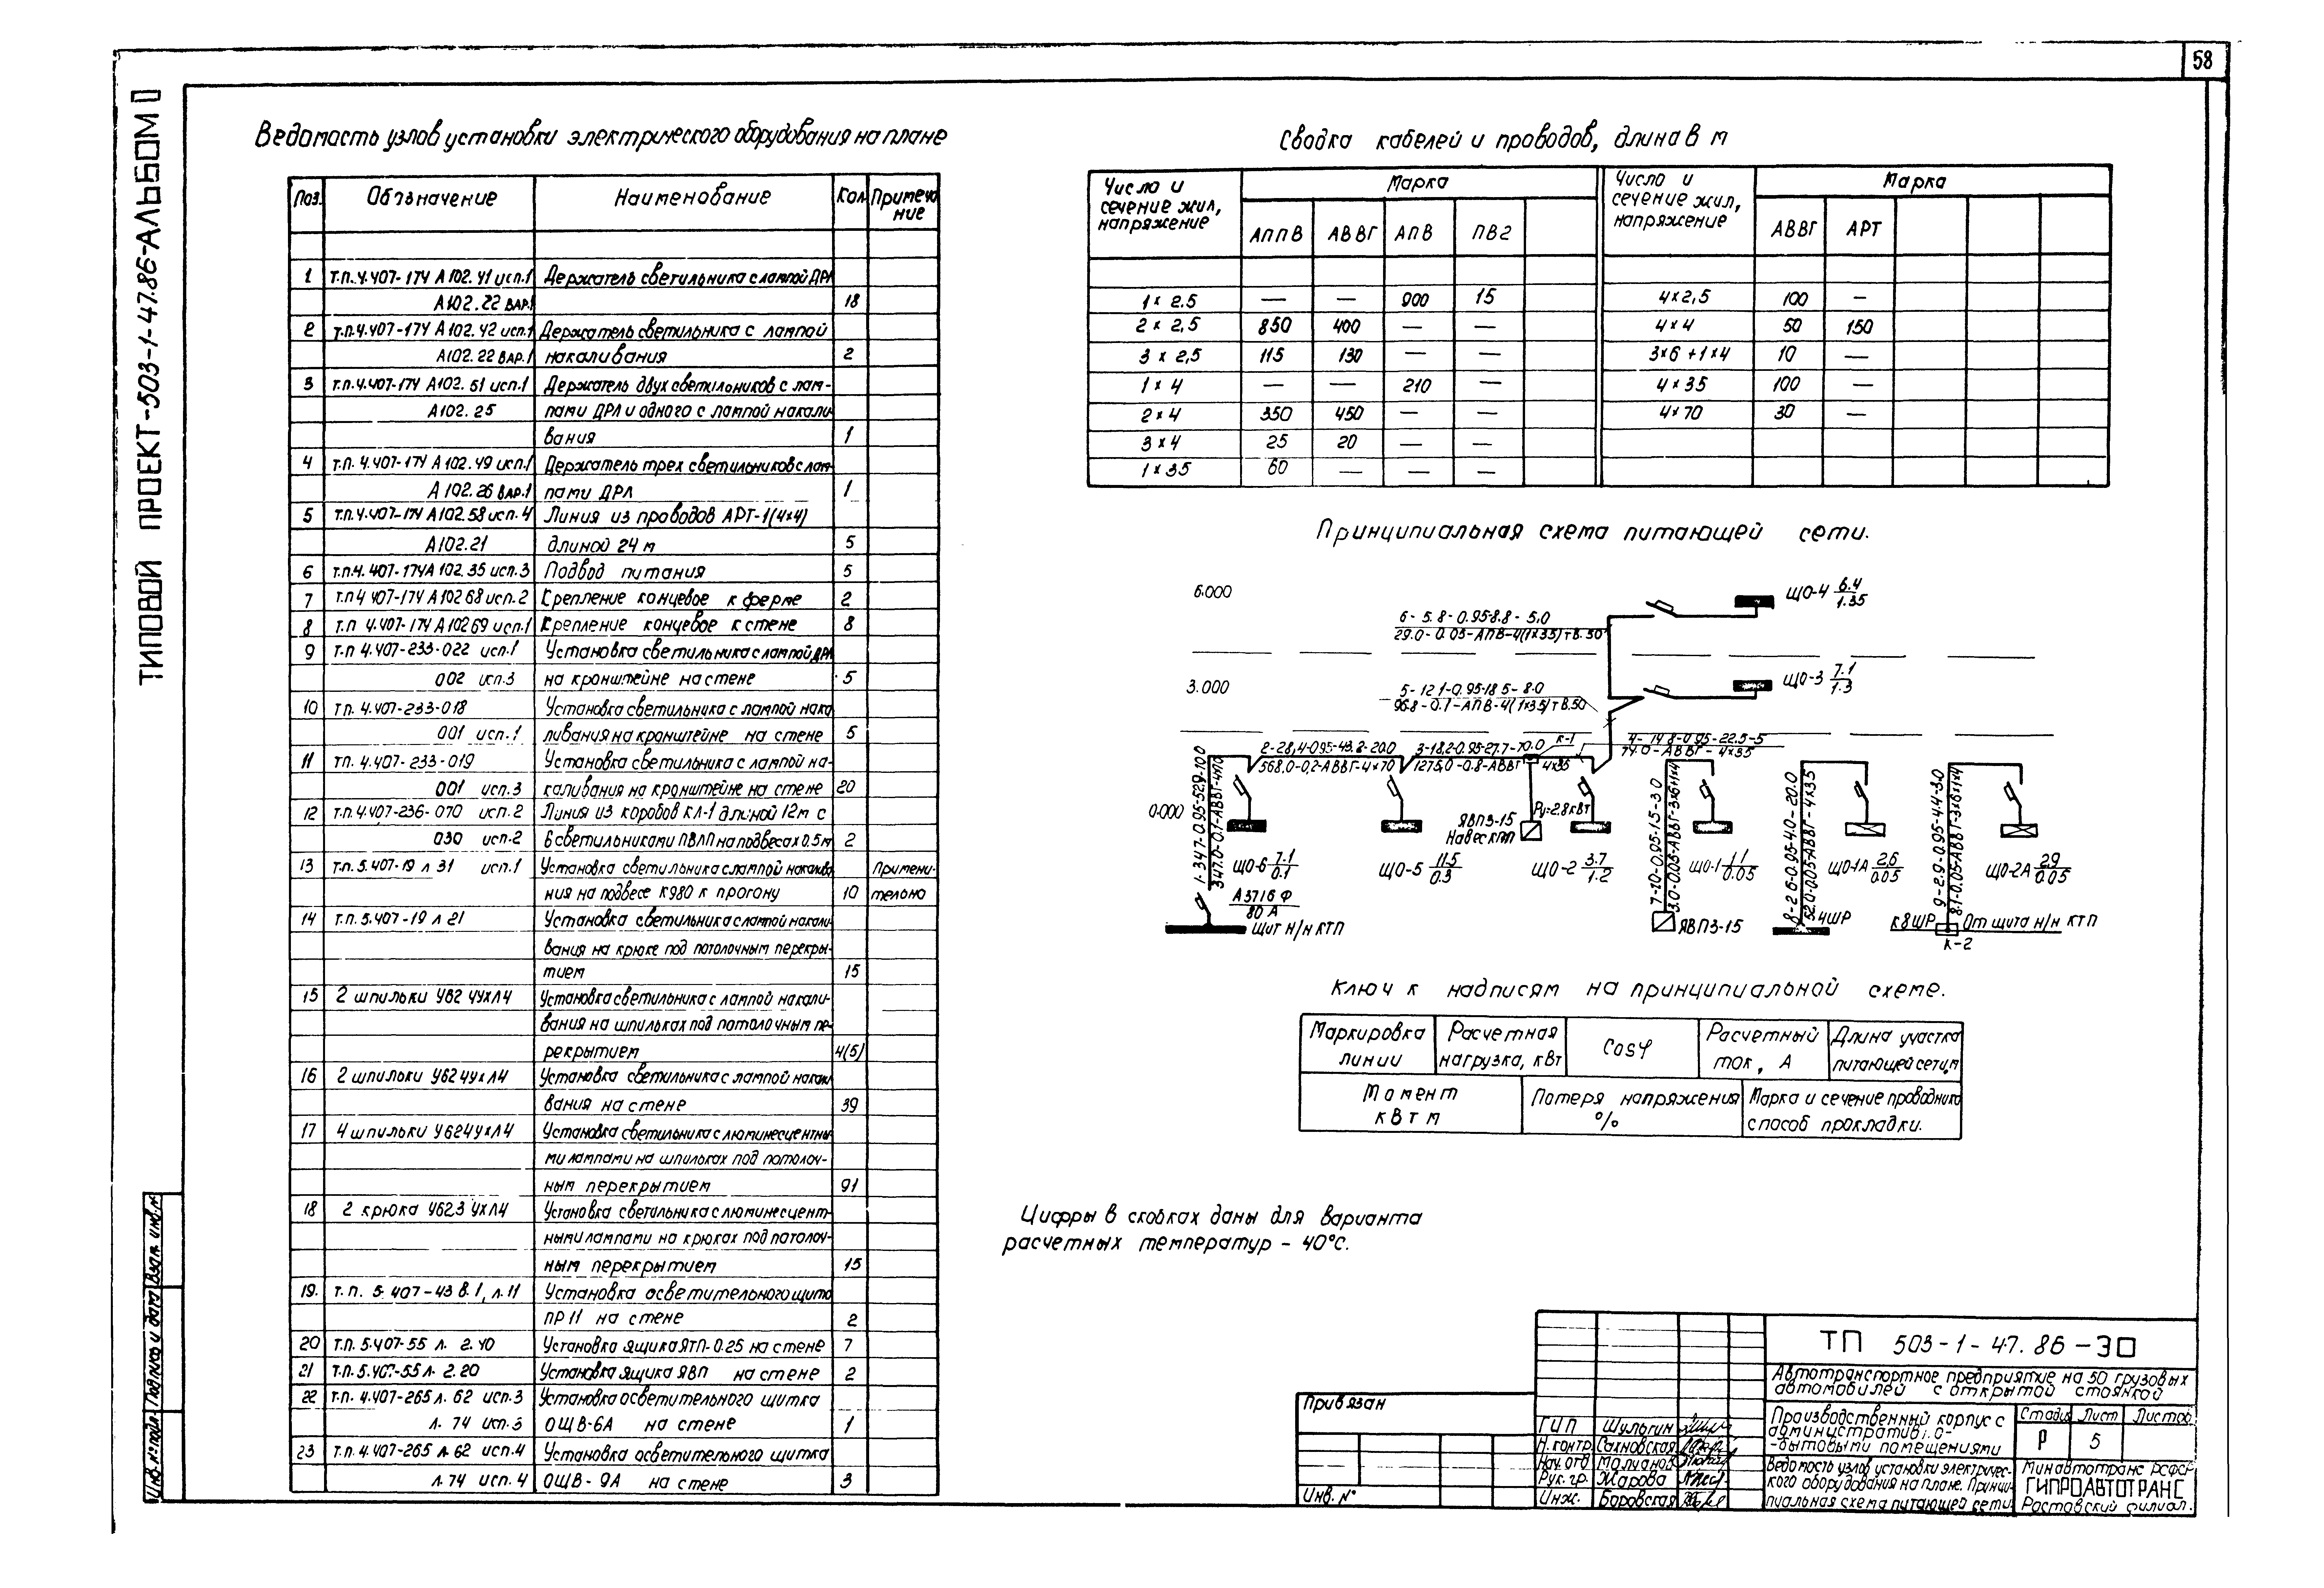 58
ТИПОВОЙ ПРОЕКТ-503-1-47.86-АЛЬБОМ
Ведомость узлов установки электрического оборудования на плане
Поз. Обозначение Наименование Кол Примеча
ние
1 Т.П.4.407-174 А102.41 исп.1 Держатель светильника с лампой ДРЛ
А102.22 ВАР.1 18
2 Т.П.4.407-174 А102.42 исп.1 Держатель светильника с лампой
А102.22 ВАР.1 накаливания 2
3 Т.П.4.407-174 А102.51 исп.1 Держатель двух светильников с лам-
А102.25 пами ДРЛ и одного с лампой накали
вания 1
4 Т.П.4.407-174 А102.49 исп.1 Держатель трех светильников с лам-
А102.26 ВАР.1 пами ДРЛ 1
5 Т.П.4.407-174 А102.58 исп.4 Линия из проводов АРТ-1(4х4)
А102.21 длиной 24 м 5
6 Т.П.4.407-174А 102.35 исп.3 Подвод питания 5
7 Т.П 4 407-174 А 102 68 исп.2 Крепление концевое к ферме 2
8 Т.П 4.407-174 А 102 69 исп.1 Крепление концевое к стене 8
9 Т.П 4.407-233-022 исп.1 Установка светильника с лампой ДРЛ
002 исп.3 на кронштейне на стене 5
10 Т.П. 4.407-233-018 Установка светильника с лампой нака
001 исп.1 ливания на кронштейне на стене 5
11 Т.П. 4.407-233-019 Установка светильника с лампой на-
001 исп.3 каливания на кронштейне на стене 20
12 Т.П.4.407-236-070 исп.2 Линия из коробов КЛ-1 длиной 12м с
030 исп.2 6 светильниками ПВЛП на подвесах 0.5м 2
13 Т.П.5.407-19 л 31 исп.1 Установка светильника с лампой накалива Примени-
ния на подвесе К980 к прогону 10 тельно
14 Т.П.5.407-19 л 21 Установка светильника с лампой накали
вания на крюке под потолочным перекры-
тием 15
15 2 шпильки У62 4УХЛ4 Установка светильника с лампой накали-
вания на шпильках под потолочным пе-
рекрытием 4(5)
16 2 шпильки У62 4УХЛ4 Установка светильника с лампой накали
вания на стене 39
17 4 шпильки У624УХЛ4 Установка светильника с люминесцентны
ми лампами на шпильках под потолоч-
ным перекрытием 91
18 2 крюка У623 УХЛ4 Установка светильника с люминесцент-
ными лампами на крюках под потолоч-
ным перекрытием 15
19. Т.П. 5.407-43 в.1, л.11 Установка осветительного щита
ПР11 на стене 2
20 Т.П.5.407-55 л. 2.40 Установка ящика ЯТП-0.25 на стене 7
21 Т.П.5.407-55 л. 2.20 Установка ящика ЯВП на стене 2
22 Т.П. 4.407-265 л. 62 исп.3 Установка осветительного щитка
л. 74 исп.3 ОЩВ-6А на стене 1
23 Т.П.4.407-265 л. 62 исп.4 Установка осветительного щитка
л.74 исп.4 ОЩВ-9А на стене 3
Сводка кабелей и проводов, длина в м
Число и сечение жил, напряжение Марка Число и сечение жил, напряжение Марка
АППВ АВВГ АПВ ПВ2 АВВГ АРТ
1 х 2.5 — — 900 15 4х2,5 100 —
2 х 2,5 850 400 — — 4х4 50 150
3 х 2,5 115 130 — — 3х6+1х4 10 —
1 х 4 — — 210 — 4х35 100 —
2х4 350 450 — — 4х70 30 —
3х4 25 20 — —
1х35 60 — — —
Принципиальная схема питающей сети.
6.000
6-5.8-0.95-8.8-5.0
29.0-0.03-АПВ-4(1х35)тВ.50
ЩО-4 6.4
1.35
3.000
5-12.1-0.95-18.5-8.0
96.8-0.1-АПВ-4(1х35)тВ.50
ЩО-3 7.1
1.3
0.000
1-347-0.95-529-10.0
347.0-0.1-АВВГ-4х70
2-28,4-0.95-43.2-20.0
568.0-0,2-АВВГ-4х70
3-18,2-0.95-27.7-70.0
1275,0-0.8-АВВГ 4х35
К-1
4-14.8-0.95-22.5-5
74.0-АВВГ-4х35
ЯВПЗ-15
Навес КТП
Ру=2.8кВт
ЩО-6 7.1
0.1
ЩО-5 11.5
0.3
ЩО-2 3.7
1.2
А3716 Ф
80 А
Щит н/н КТП
7-1.0-0.95-1.5-3.0
3.0-0.03-АВВГ-3х6+1х4
ЩО-1 1.1
0.05
ЯВПЗ-15
8-2.6-0.95-4.0-20.0
52.0-0.05-АВВГ-4х35
ЩО-1А 2.6
0.05
ЧШР
9-2.9-0.95-4.4-3.0
8.1-0.05-АВВГ-3х6+1х4
ЩО-2А 2.9
0.05
К 8ШР От щита н/н КТП
К-2
Ключ к надписям на принципиальной схеме.
Маркировка линии Расчетная нагрузка, кВт Cosφ Расчетный ток, А Длина участка питающей сети,м
Момент кВт м Потеря напряжения % Марка и сечение проводника способ прокладки.
Цифры в скобках даны для варианта
расчетных температур - 40°с.
ТП 503-1-47.86-ЭО
Автотранспортное предприятие на 50 грузовых
автомобилей с открытой стоянкой
Привязан
Инв. №
ГИП Шульгин
Н.контр. Сахновская
Нач. отд Малианов
Рук. гр. Жарова
Инж. Боровская
Производственный корпус с
административно-
-бытовыми помещениями
Стадия Лист Листов
Р 5
Ведомость узлов установки электричес-
кого оборудования на плане. Принци-
пиальная схема питающей сети
Минавтотранс РСФСР
ГИПРОАВТОТРАНС
Ростовский филиал.
Инв.№ подл. Подпись и дата Взам. инв.№